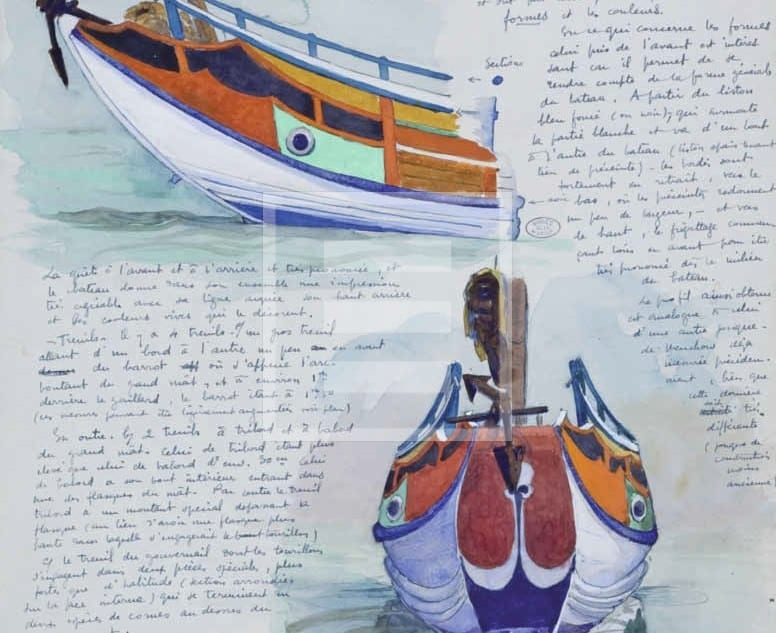 et
formes et les couleurs.
En ce qui concerne les formes
celui pris de l'avant est intéres
sant car il permet de se
rendre compte de la forme générale
du bateau. A partir du liston
bleu foncé (ou noir) qui surmonte
la partie blanche et va d'un bout
à l'autre du bateau (liston épais tenant
lieu de préceinte) – les bordés sont
fortement en retrait, vers le
bas, où les préceintes redonnent
un peu de largeur, – et vers
le haut, le
en avant pour être
très prononcé dès le milieu
du bateau.
Le profil ainsi obtenu
est analogue à celui
d'une autre jonque
de Wenchow déjà
mesurée précédem
ment, bien que
cette dernière
soit très
différente
(jonques de
construction
moins
ancienne)
Sections
noir
La quête à l'avant et à l'arrière est très prononcée, et
le bateau donne dans son ensemble une impression
très agréable avec sa ligne arquée son haut arrière
et les couleurs vives qui le décorent.
– Treuils. Il y a 4 treuils. un gros treuil
allant d'un bord à l'autre un peu en avant
du barrot où s'appuie l'arc
boutant du grand mât, et à environ 1
derrière le gaillard, le barrot étant à 1
(ces mesures peuvent être légèrement augmentées voir plan)
En outre. Il y 2 treuils à tribord et à babord
du grand mât. Celui de tribord étant plus
élevé que celui de babord d'env. 30 cm Celui
de babord a son bout intérieur entrant dans
une des flasques du mât. Par contre le treuil
tribord a un montant spécial dépassant la
flasque (au lieu d'avoir une flasque plus
haute dans laquelle s'engagerait le tourillon)
Il y le treuil du gouvernail dont les tourillons
s'engagent dans deux pièces spéciales, plus
fortes que d'habitude (section arrondie
sur la face interne) qui se terminent en
deux espèces de cornes au dessus du